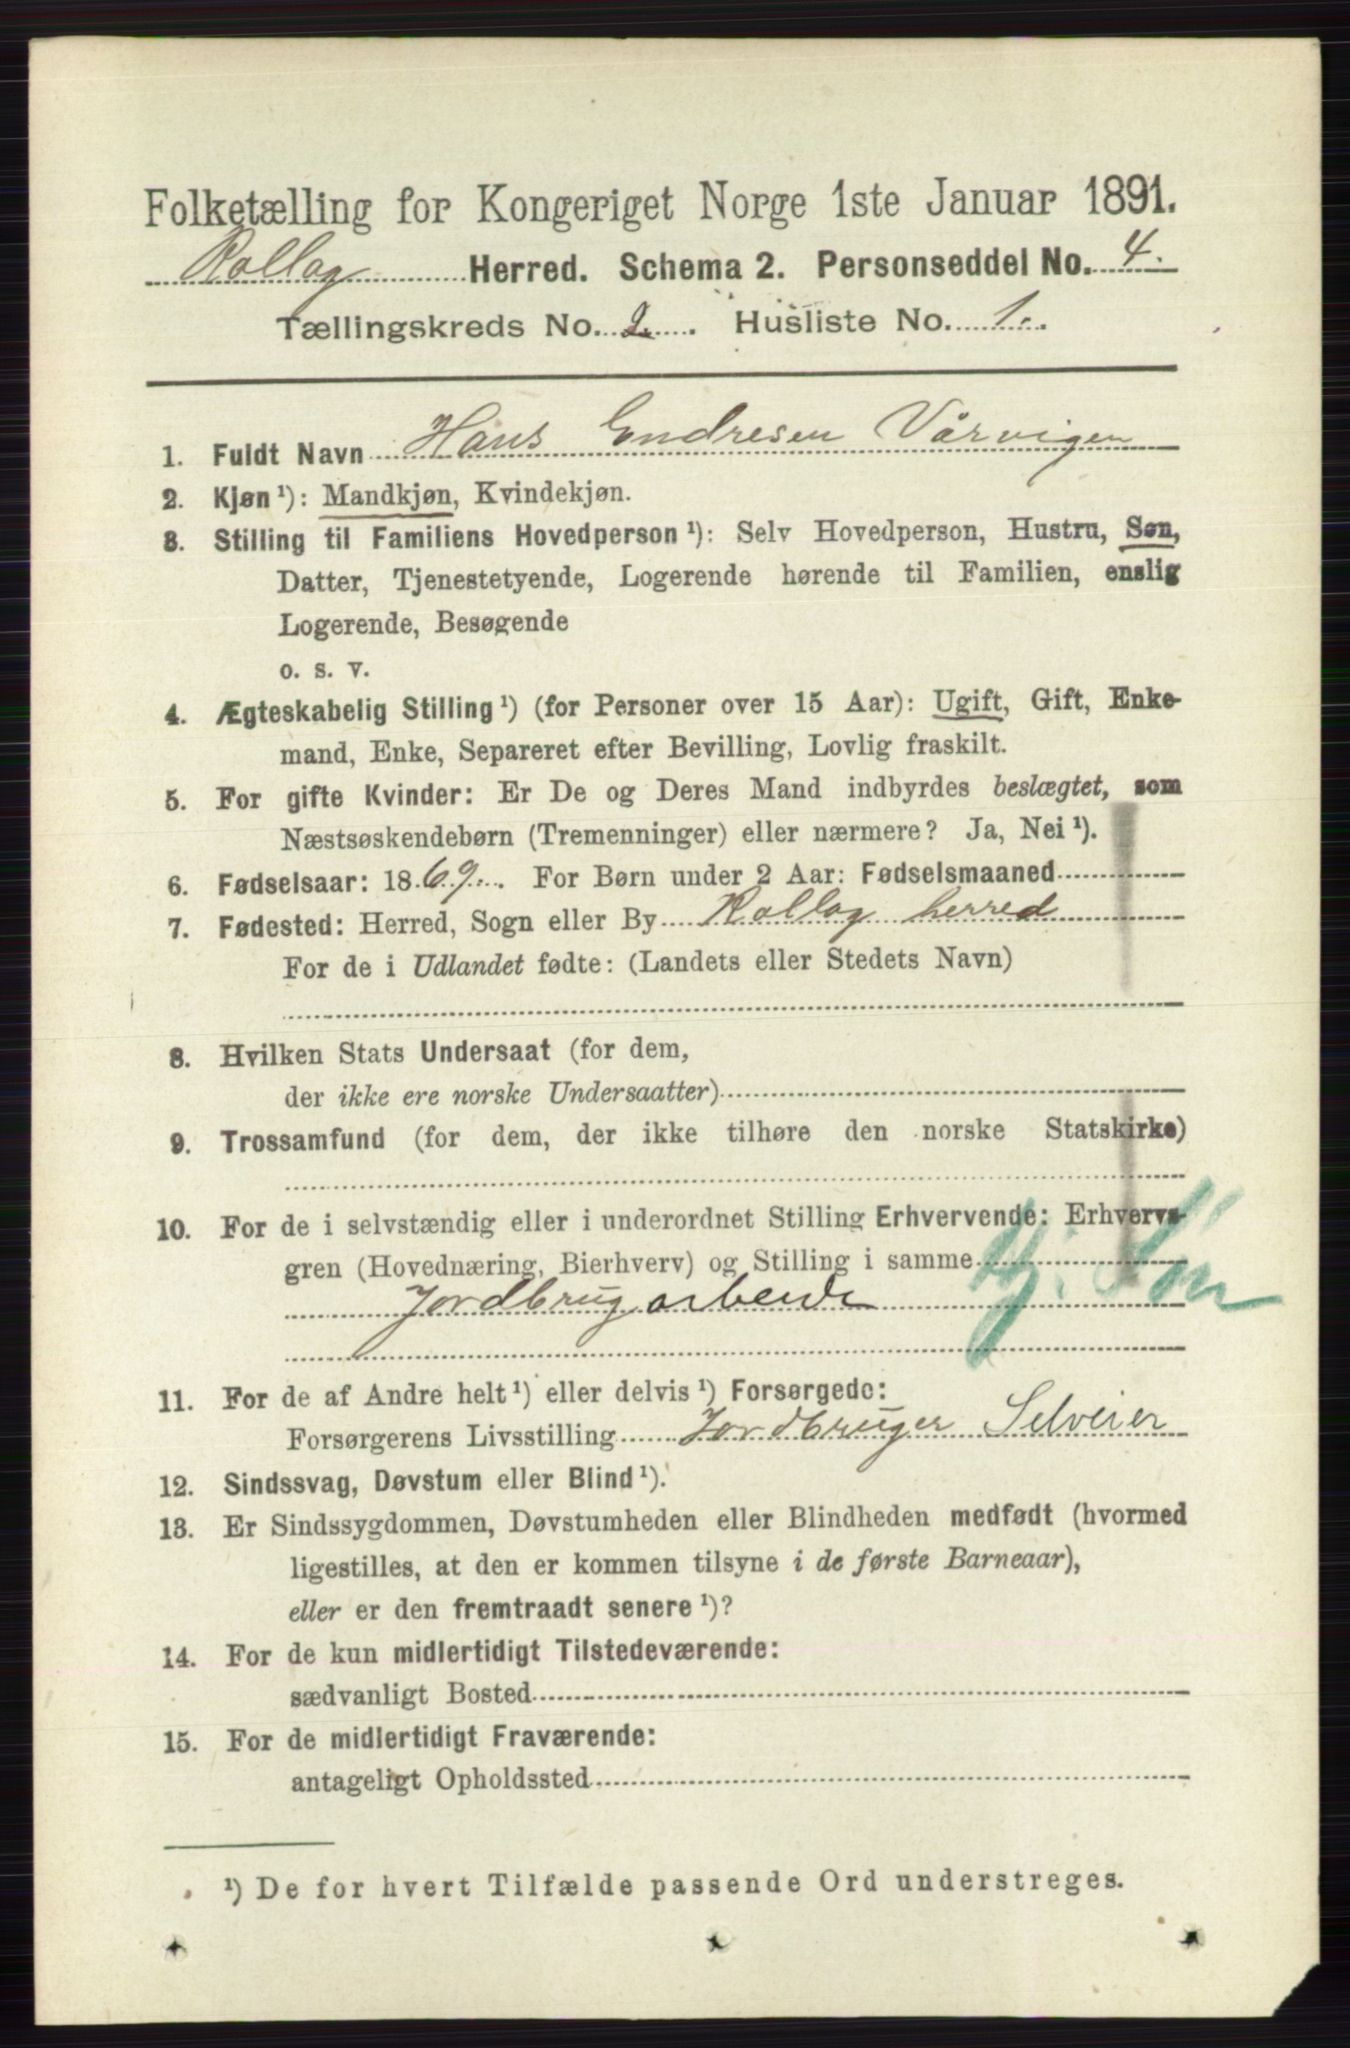 Folketælling for Kongeriget Norge 1ste Januar 1891.
Rollag Herred. Schema 2. Personseddel No. 4.
Tællingskreds No. 2. Husliste No. 1.
1. Fuldt Navn Hans Endresen Vårvigen
2. Kjøn ¹): Mandkjøn, Kvindekjøn.
3. Stilling til Familiens Hovedperson ¹): Selv Hovedperson, Hustru, Søn,
Datter, Tjenestetyende, Logerende hørende til Familien, enslig
Logerende, Besøgende
o. s. v.
4. Ægteskabelig Stilling ¹) (for Personer over 15 Aar): Ugift, Gift, Enke-
mand, Enke, Separeret efter Bevilling, Lovlig fraskilt.
5. For gifte Kvinder: Er De og Deres Mand indbyrdes beslægtet, som
Næstsøskendebørn (Tremenninger) eller nærmere? Ja, Nei ¹).
6. Fødselsaar: 1869. For Børn under 2 Aar: Fødselsmaaned
7. Fødested: Herred, Sogn eller By Rollag herred
For de i Udlandet fødte: (Landets eller Stedets Navn)
8. Hvilken Stats Undersaat (for dem,
der ikke ere norske Undersaatter)
9. Trossamfund (for dem, der ikke tilhøre den norske Statskirke)
10. For de i selvstændig eller i underordnet Stilling Erhvervende: Erhvervs-
gren (Hovednæring, Bierhverv) og Stilling i samme Hj. Søn
Jordbrugarbeide
11. For de af Andre helt ¹) eller delvis ¹) Forsørgede:
Forsørgerens Livsstilling Jordbruger Selveier
12. Sindssvag, Døvstum eller Blind ¹).
13. Er Sindssygdommen, Døvstumheden eller Blindheden medfødt (hvormed
ligestilles, at den er kommen tilsyne i de første Barneaar),
eller er den fremtraadt senere ¹)?
14. For de kun midlertidigt Tilstedeværende:
sædvanligt Bosted
15. For de midlertidigt Fraværende:
antageligt Opholdssted
¹) De for hvert Tilfælde passende Ord understreges.